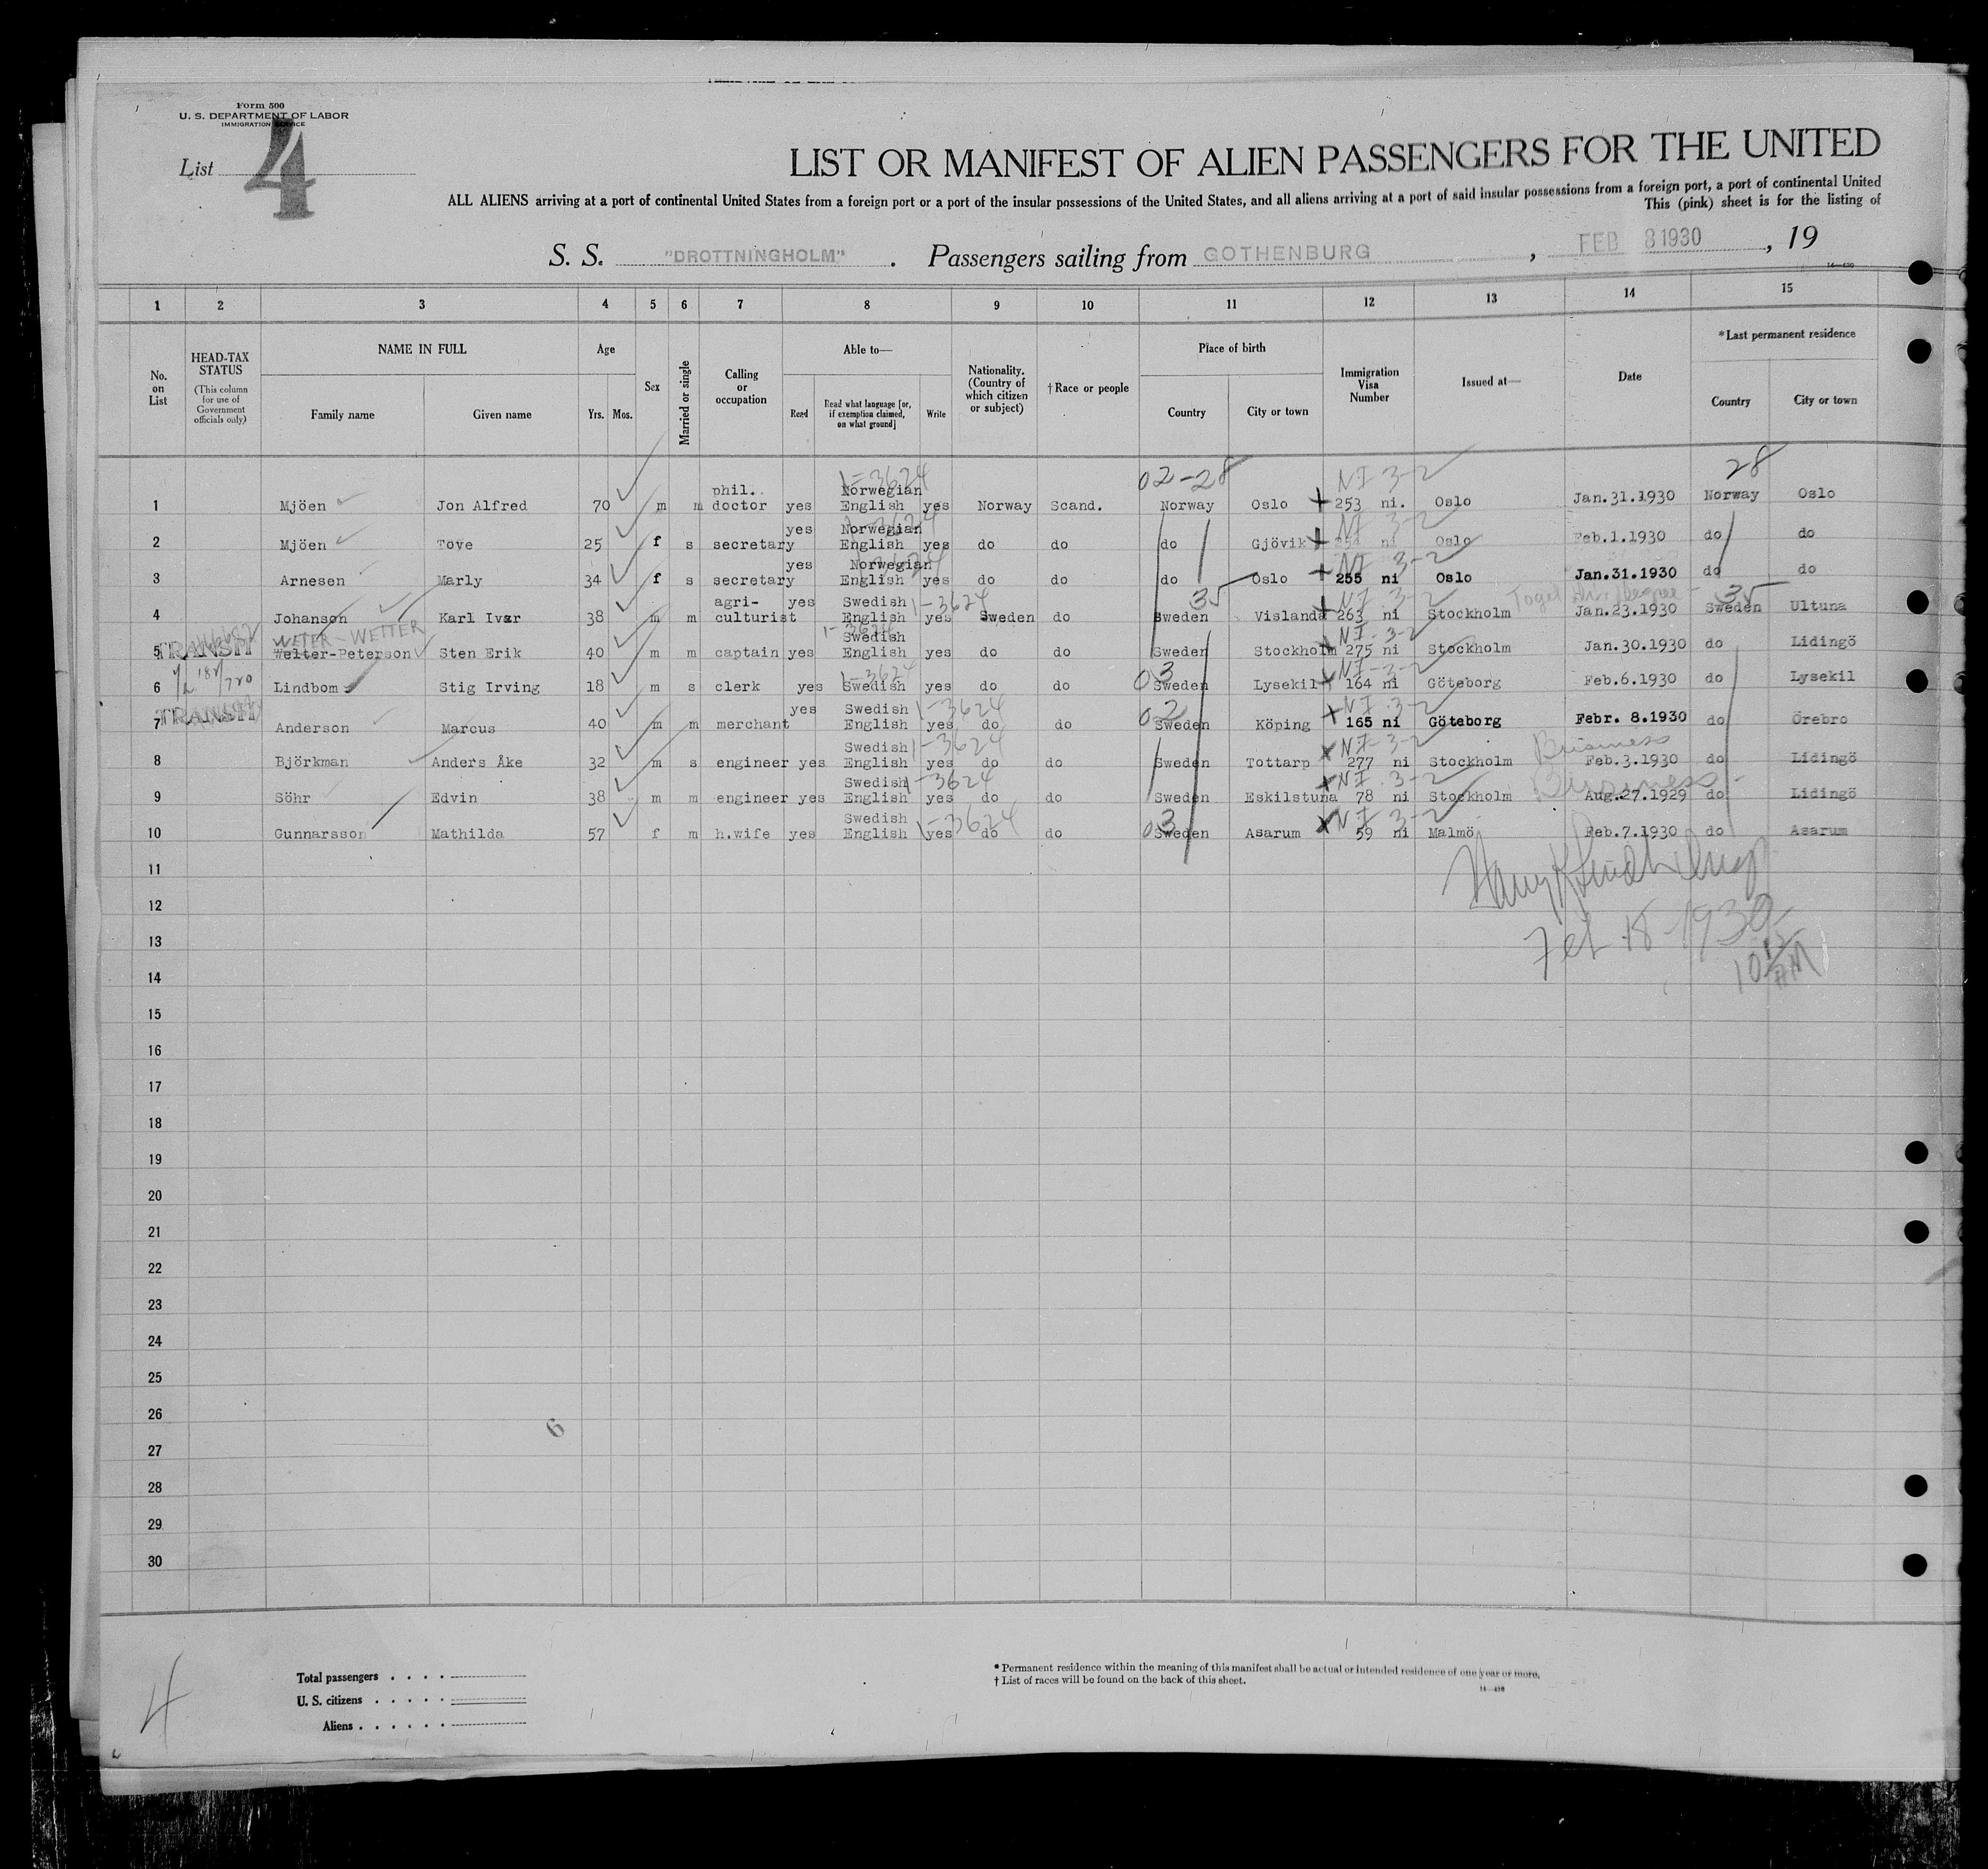 Form 500
U. S. DEPARTMENT OF LABOR
IMMIGRATION SERVICE
List 4
LIST OR MANIFEST OF ALIEN PASSENGERS FOR THE UNITED
ALL ALIENS arriving at a port of continental United States from a foreign port or a port of the insular possessions of the United States, and all aliens arriving at a port of said insular possessions from a foreign port, a port of continental United
This (pink) sheet is for the listing of
S. S. "DROTTNINGHOLM". Passengers sailing from GOTHENBURG, FEB 8 1930, 19
14—430
1 2 3 4 5 6 7 8 9 10 11 12 13 14 15
No. on List
HEAD-TAX STATUS
(This column for use of Government officials only)
NAME IN FULL
Family name Given name
Age
Yrs. Mos.
Sex
Married or single
Calling or occupation
Able to—
Read Read what language [or, if exemption claimed, on what ground] Write
Nationality. (Country of which citizen or subject)
†Race or people
Place of birth
Country City or town
Immigration Visa Number
Issued at—
Date
*Last permanent residence
Country City or town
1-3624 02-28 NI 3-2 28
1 Mjöen Jon Alfred 70 m m phil. doctor yes Norwegian English yes Norway Scand. Norway Oslo 253 ni. Oslo Jan.31.1930 Norway Oslo
NI 3-2
2 Mjöen Tove 25 f s secretary yes Norwegian English yes do do do Gjövik 254 ni Oslo Feb.1.1930 do do
NI 3-2
3 Arnesen Marly 34 f s secretary yes Norwegian English yes do do do Oslo 255 ni Oslo Jan.31.1930 do do
1-3624 35 NI 3-2 35
4 Johanson Karl Ivar 38 m m agri-culturist yes Swedish English yes Sweden do Sweden Vislanda 263 ni Stockholm Jan.23.1930 Sweden Ultuna
TRANSIT WETER-WETTER 1-3624 NI-3-2
5 Welter-Peterson Sten Erik 40 m m captain yes Swedish English yes do do Sweden Stockholm 275 ni Stockholm Jan.30.1930 do Lidingö
1-3624 03 NI-3-2
6 Lindbom Stig Irving 18 m s clerk yes Swedish yes do do Sweden Lysekil 164 ni Göteborg Feb.6.1930 do Lysekil
TRANSIT 1-3624 02 NI 3-2
7 Anderson Marcus 40 m m merchant yes Swedish English yes do do Sweden Köping 165 ni Göteborg Febr. 8.1930 do Örebro
1-3624 NI-3-2 Business
8 Björkman Anders Åke 32 m s engineer yes Swedish English yes do do Sweden Tottarp 277 ni Stockholm Feb.3.1930 do Lidingö
1-3624 NI 3-2 Business
9 Söhr Edvin 38 m m engineer yes Swedish English yes do do Sweden Eskilstuna 78 ni Stockholm Aug.27.1929 do Lidingö
1-3624 03 NI 3-2
10 Gunnarsson Mathilda 57 f m h.wife yes Swedish English yes do do Sweden Asarum 59 ni Malmö Feb.7.1930 do Asarum
11
12
Feb 18-1930
13
10 15 AM
14
15
16
17
18
19
20
21
22
23
24
25
26
6
27
28
29
30
4
Total passengers
U. S. citizens
Aliens
* Permanent residence within the meaning of this manifest shall be actual or intended residence of one year or more.
† List of races will be found on the back of this sheet.
14—430